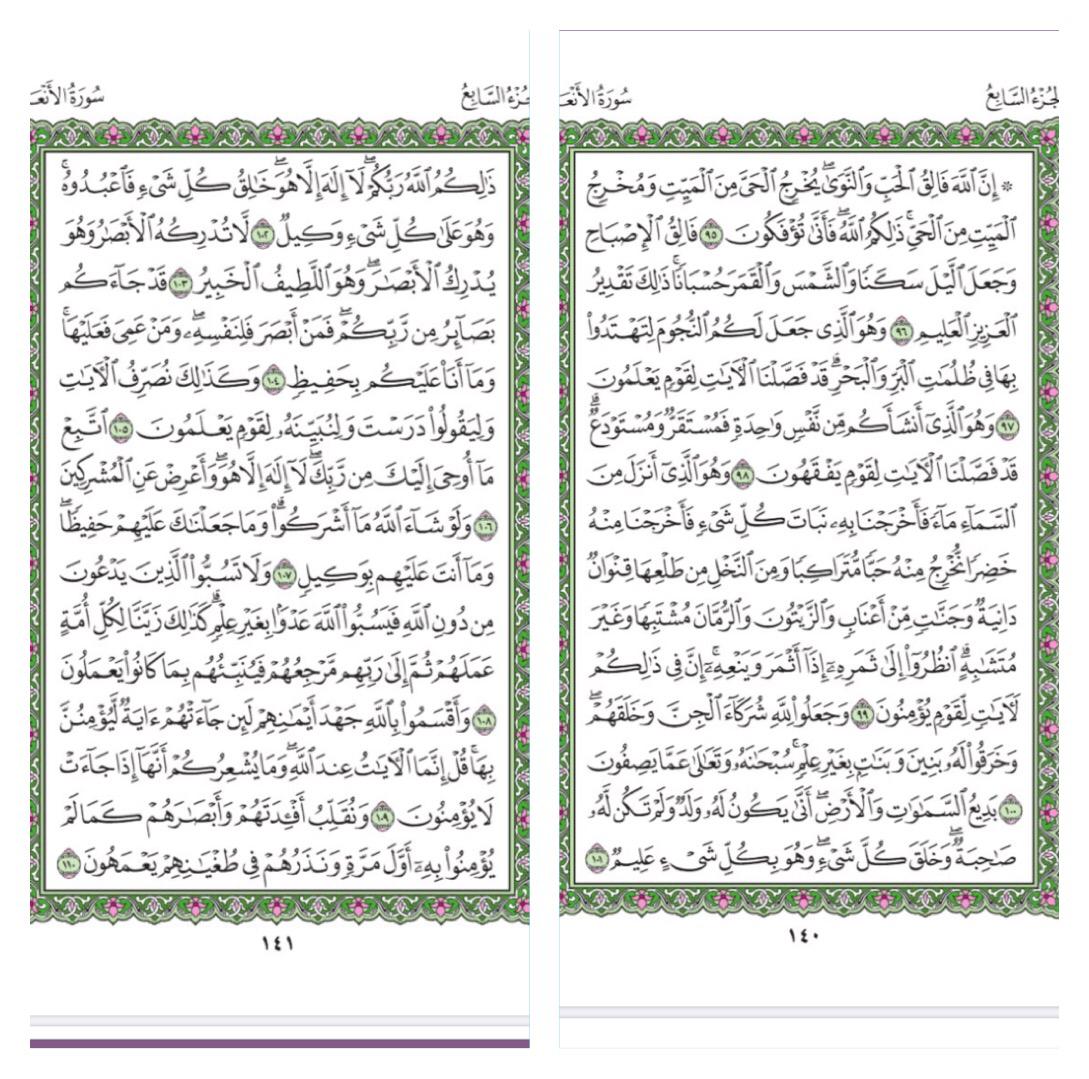 الجُزْءُ السَّابِعُ سُورَةُ الأَنْعَ
۞ إِنَّ ٱللَّهَ فَالِقُ ٱلْحَبِّ وَٱلنَّوَىٰۖ يُخْرِجُ ٱلْحَيَّ مِنَ ٱلْمَيِّتِ وَمُخْرِجُ
ٱلْمَيِّتِ مِنَ ٱلْحَيِّۚ ذَٰلِكُمُ ٱللَّهُۖ فَأَنَّىٰ تُؤْفَكُونَ ٩٥ فَالِقُ ٱلْإِصْبَاحِ
وَجَعَلَ ٱلَّيْلَ سَكَنًا وَٱلشَّمْسَ وَٱلْقَمَرَ حُسْبَانًاۚ ذَٰلِكَ تَقْدِيرُ
ٱلْعَزِيزِ ٱلْعَلِيمِ ٩٦ وَهُوَ ٱلَّذِي جَعَلَ لَكُمُ ٱلنُّجُومَ لِتَهْتَدُوا۟
بِهَا فِي ظُلُمَٰتِ ٱلْبَرِّ وَٱلْبَحْرِۗ قَدْ فَصَّلْنَا ٱلْءَايَٰتِ لِقَوْمٍ يَعْلَمُونَ
٩٧ وَهُوَ ٱلَّذِيٓ أَنشَأَكُم مِّن نَّفْسٍ وَٰحِدَةٍ فَمُسْتَقَرٌّ وَمُسْتَوْدَعٌۗ
قَدْ فَصَّلْنَا ٱلْءَايَٰتِ لِقَوْمٍ يَفْقَهُونَ ٩٨ وَهُوَ ٱلَّذِيٓ أَنزَلَ مِنَ
ٱلسَّمَآءِ مَآءً فَأَخْرَجْنَا بِهِۦ نَبَاتَ كُلِّ شَيْءٍ فَأَخْرَجْنَا مِنْهُ
خَضِرًا نُّخْرِجُ مِنْهُ حَبًّا مُّتَرَاكِبًا وَمِنَ ٱلنَّخْلِ مِن طَلْعِهَا قِنْوَانٌ
دَانِيَةٌ وَجَنَّٰتٍ مِّنْ أَعْنَابٍ وَٱلزَّيْتُونَ وَٱلرُّمَّانَ مُشْتَبِهًا وَغَيْرَ
مُتَشَٰبِهٍۗ ٱنظُرُوٓا۟ إِلَىٰ ثَمَرِهِۦٓ إِذَآ أَثْمَرَ وَيَنْعِهِۦٓۚ إِنَّ فِي ذَٰلِكُمْ
لَءَايَٰتٍ لِّقَوْمٍ يُؤْمِنُونَ ٩٩ وَجَعَلُوا۟ لِلَّهِ شُرَكَآءَ ٱلْجِنَّ وَخَلَقَهُمْۖ
وَخَرَقُوا۟ لَهُۥ بَنِينَ وَبَنَٰتٍۭ بِغَيْرِ عِلْمٍۚ سُبْحَٰنَهُۥ وَتَعَٰلَىٰ عَمَّا يَصِفُونَ
١٠٠ بَدِيعُ ٱلسَّمَٰوَٰتِ وَٱلْأَرْضِۖ أَنَّىٰ يَكُونُ لَهُۥ وَلَدٌ وَلَمْ تَكُن لَّهُۥ
صَٰحِبَةٌۖ وَخَلَقَ كُلَّ شَيْءٍۖ وَهُوَ بِكُلِّ شَيْءٍ عَلِيمٌ ١٠١
١٤٠
الجُزْءُ السَّابِعُ سُورَةُ الأَنْعَ
ذَٰلِكُمُ ٱللَّهُ رَبُّكُمْۖ لَآ إِلَٰهَ إِلَّا هُوَۖ خَٰلِقُ كُلِّ شَيْءٍ فَٱعْبُدُوهُۚ
وَهُوَ عَلَىٰ كُلِّ شَيْءٍ وَكِيلٌ ١٠٢ لَّا تُدْرِكُهُ ٱلْأَبْصَٰرُ وَهُوَ
يُدْرِكُ ٱلْأَبْصَٰرَۖ وَهُوَ ٱللَّطِيفُ ٱلْخَبِيرُ ١٠٣ قَدْ جَآءَكُم
بَصَآئِرُ مِن رَّبِّكُمْۖ فَمَنْ أَبْصَرَ فَلِنَفْسِهِۦۖ وَمَنْ عَمِيَ فَعَلَيْهَاۚ
وَمَآ أَنَا۠ عَلَيْكُم بِحَفِيظٍ ١٠٤ وَكَذَٰلِكَ نُصَرِّفُ ٱلْءَايَٰتِ
وَلِيَقُولُوا۟ دَرَسْتَ وَلِنُبَيِّنَهُۥ لِقَوْمٍ يَعْلَمُونَ ١٠٥ ٱتَّبِعْ
مَآ أُوحِيَ إِلَيْكَ مِن رَّبِّكَۖ لَآ إِلَٰهَ إِلَّا هُوَۖ وَأَعْرِضْ عَنِ ٱلْمُشْرِكِينَ
١٠٦ وَلَوْ شَآءَ ٱللَّهُ مَآ أَشْرَكُوا۟ۗ وَمَا جَعَلْنَٰكَ عَلَيْهِمْ حَفِيظًاۖ
وَمَآ أَنتَ عَلَيْهِم بِوَكِيلٍ ١٠٧ وَلَا تَسُبُّوا۟ ٱلَّذِينَ يَدْعُونَ
مِن دُونِ ٱللَّهِ فَيَسُبُّوا۟ ٱللَّهَ عَدْوًۢا بِغَيْرِ عِلْمٍۗ كَذَٰلِكَ زَيَّنَّا لِكُلِّ أُمَّةٍ
عَمَلَهُمْ ثُمَّ إِلَىٰ رَبِّهِم مَّرْجِعُهُمْ فَيُنَبِّئُهُم بِمَا كَانُوا۟ يَعْمَلُونَ
١٠٨ وَأَقْسَمُوا۟ بِٱللَّهِ جَهْدَ أَيْمَٰنِهِمْ لَئِن جَآءَتْهُمْ ءَايَةٌ لَّيُؤْمِنُنَّ
بِهَاۚ قُلْ إِنَّمَا ٱلْءَايَٰتُ عِندَ ٱللَّهِۖ وَمَا يُشْعِرُكُمْ أَنَّهَآ إِذَا جَآءَتْ
لَا يُؤْمِنُونَ ١٠٩ وَنُقَلِّبُ أَفْـِٔدَتَهُمْ وَأَبْصَٰرَهُمْ كَمَا لَمْ
يُؤْمِنُوا۟ بِهِۦٓ أَوَّلَ مَرَّةٍ وَنَذَرُهُمْ فِي طُغْيَٰنِهِمْ يَعْمَهُونَ ١١٠
١٤١